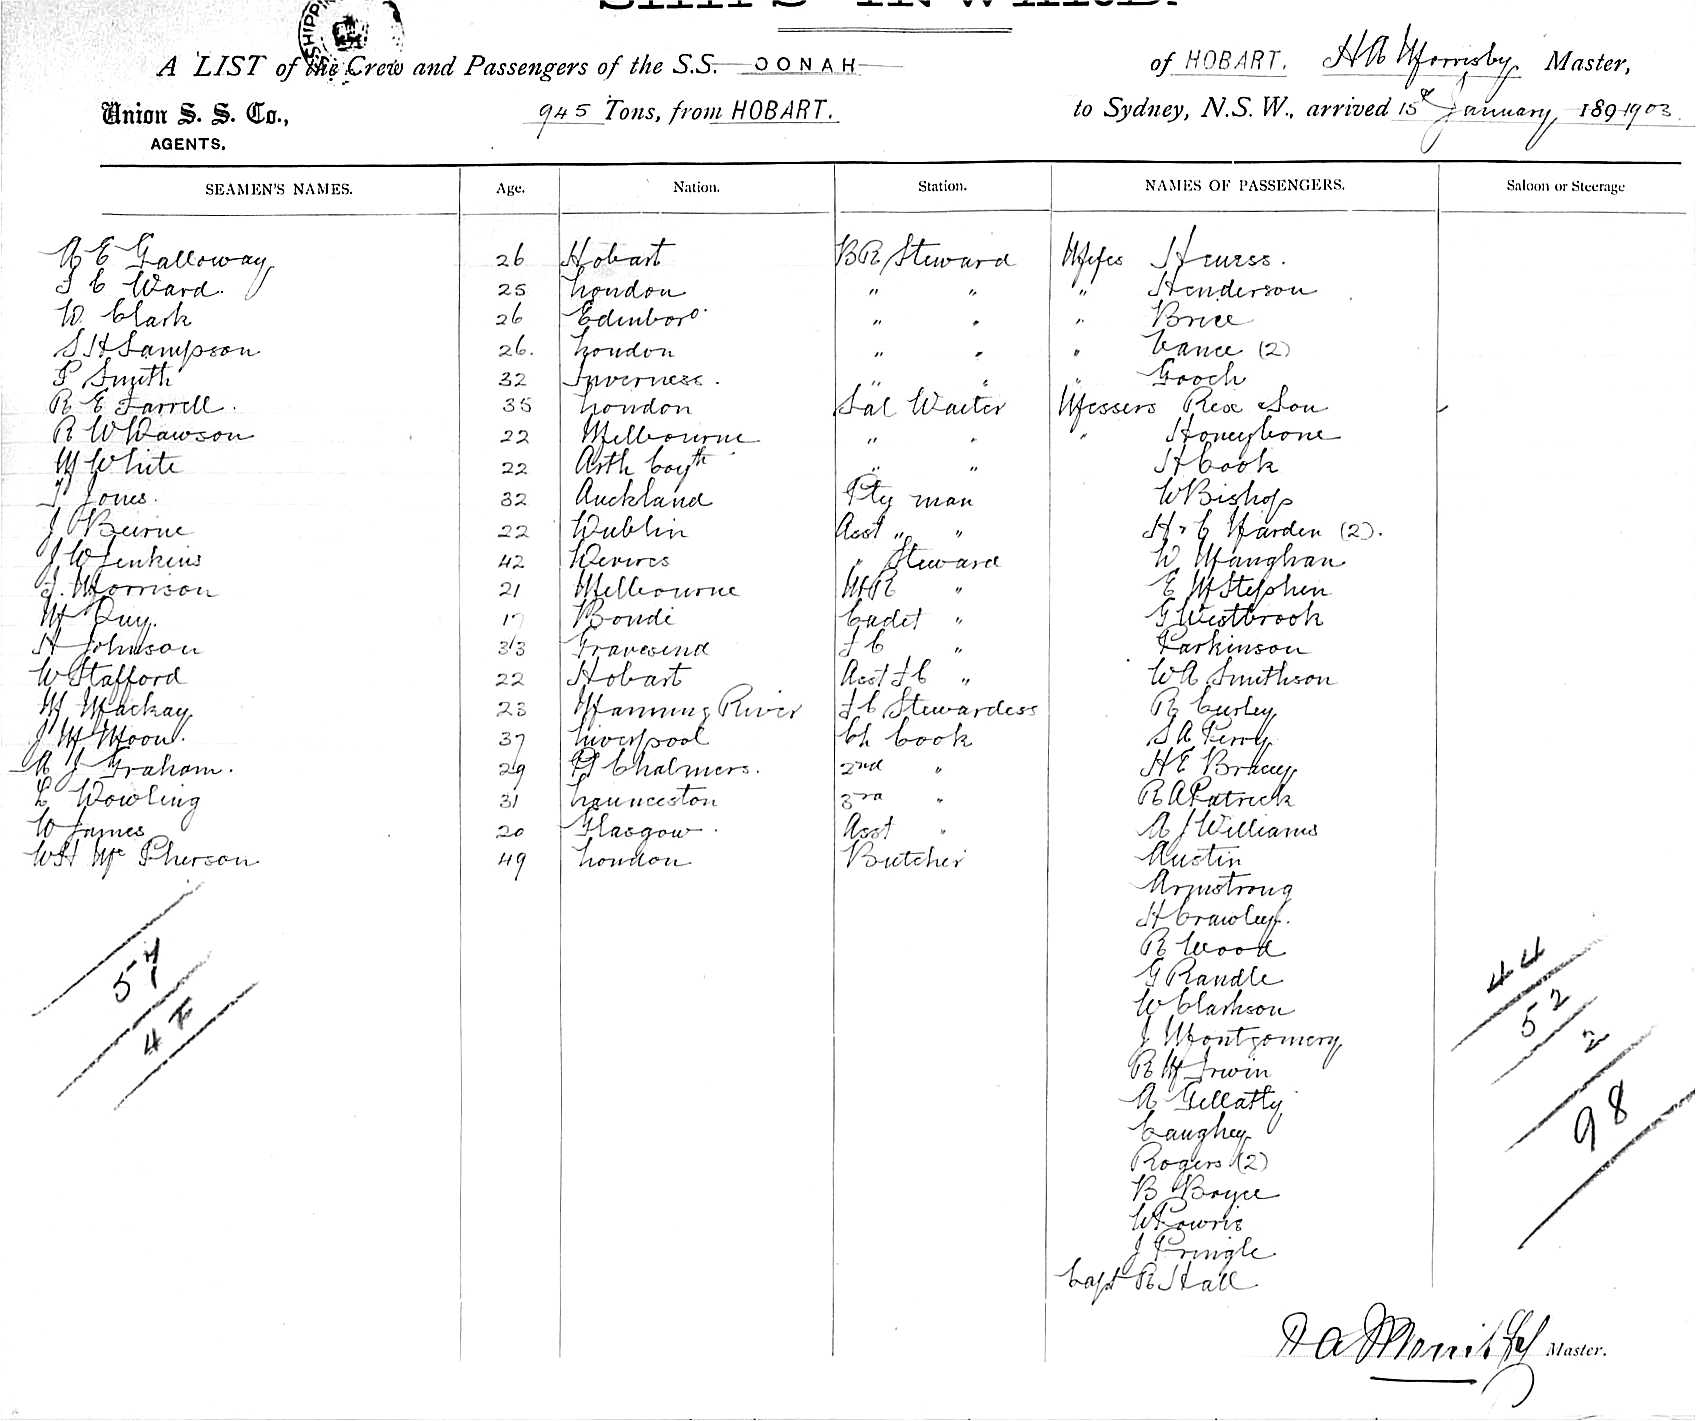 SHIPS INWARD.
SHIPPI
A LIST of the Crew and Passengers of the S.S. OONAH of HOBART. Master,
Union S. S. Co., 945 Tons, from HOBART. to Sydney, N.S.W., arrived 15th January 189 1903
AGENTS.
SEAMEN'S NAMES. Age. Nation. Station. NAMES OF PASSENGERS. Saloon or Steerage
A E Galloway 26 Hobart BR Steward Messrs
C Ward. 25 London " " " Henderson
W Clark 26 Edinboro " " " Brice
S H Sampson 26. London " " " Vance (2)
P Smith 32 Inverness. " " " Gooch
R E Farrell. 35 London Sal Waiter Messers Rex & Son
R W Dawson 22 Melbourne " " " Honeybone
M White 22 " " H Cook
T Jones. 32 Auckland Pty man W Bishop
J O Beirne 22 Dublin Asst " " H & C Harden (2).
J W Jenkins 42 " Steward W Maughan
J. Morrison 21 Melbourne MR " E McStephen
M Quy. 17 Bondi Cadet " G Westbrook
H Johnson 33 Gravesend F C " Parkinson
W Stafford 22 Hobart Asst F C " W A Smithson
M Mackay 23 Manning River F C Stewardess R Curley
J M Moon. 37 Liverpool Ch Cook S A Perry
A J Graham. 29 Pt Chalmers. 2nd " H E Bracey
L Dowling 31 Launceston 3rd " R A Patrick
W James 20 Glasgow. Asst " A J Williams
W H McPherson 49 London Butcher Austin
Armstrong
H Crawley.
R Wood
G Randle
W Clarkson
J Montgomery
R M Irwin
A Gellatly
Caughey
Rogers (2)
B Boyce
W Powrie
J Pringle
Capt R Hall
57
44
52
2
98
Master.